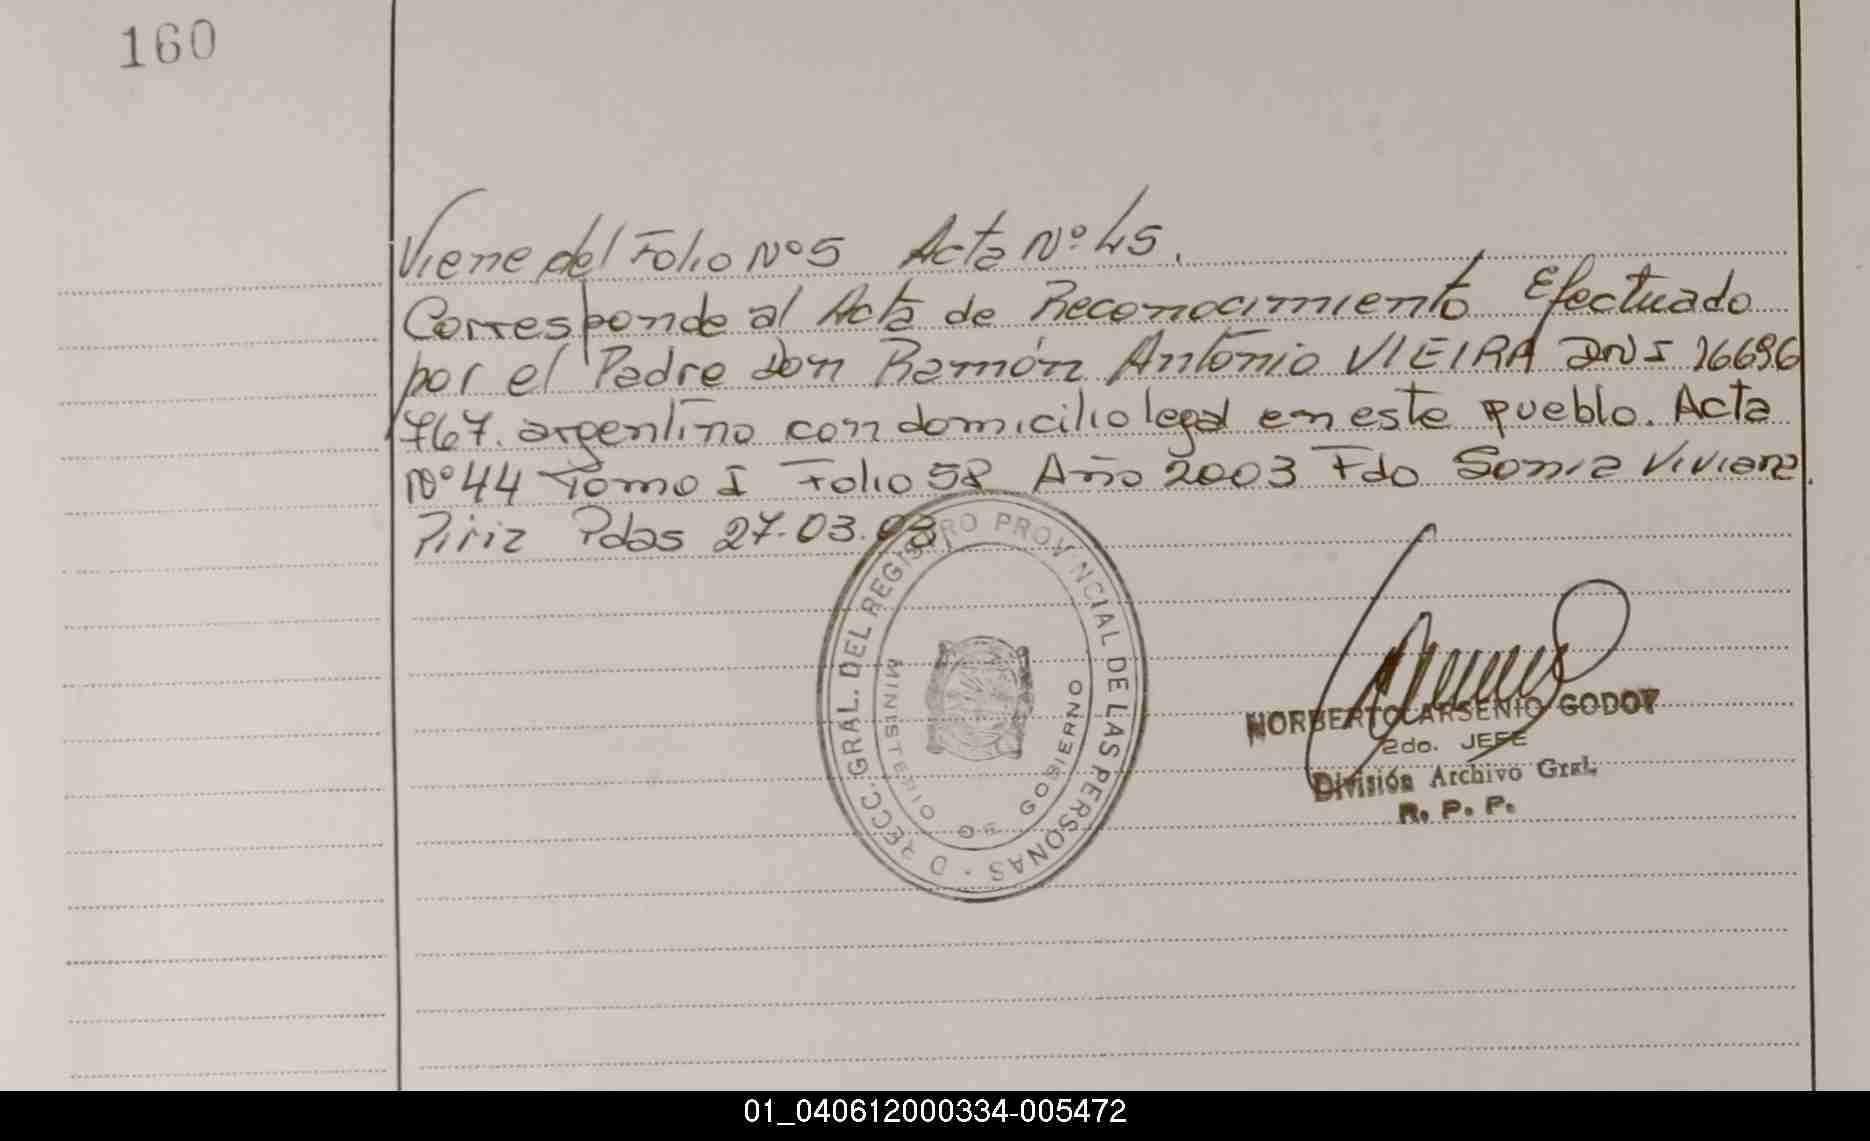 160
Viene del Folio Nº 5 Acta Nº 45.
Corresponde al Acta de Reconocimiento Efectuado
por el Padre Don Ramón Antonio VIEIRA DNI 16696
767. argentino con domicilio legal en este pueblo. Acta
Nº 44 Tomo I Folio 58 Año 2003 Fdo Sonia Viviana
Piriz Pdas 27-03.03.
DIRECC. GRAL. DEL REGISTRO PROVINCIAL DE LAS PERSONAS
MINISTERIO DE GOBIERNO
NORBERTO ARSENIO GODOY
2do. JEFE
División Archivo Gral.
R. P. P.
01_040612000334-005472